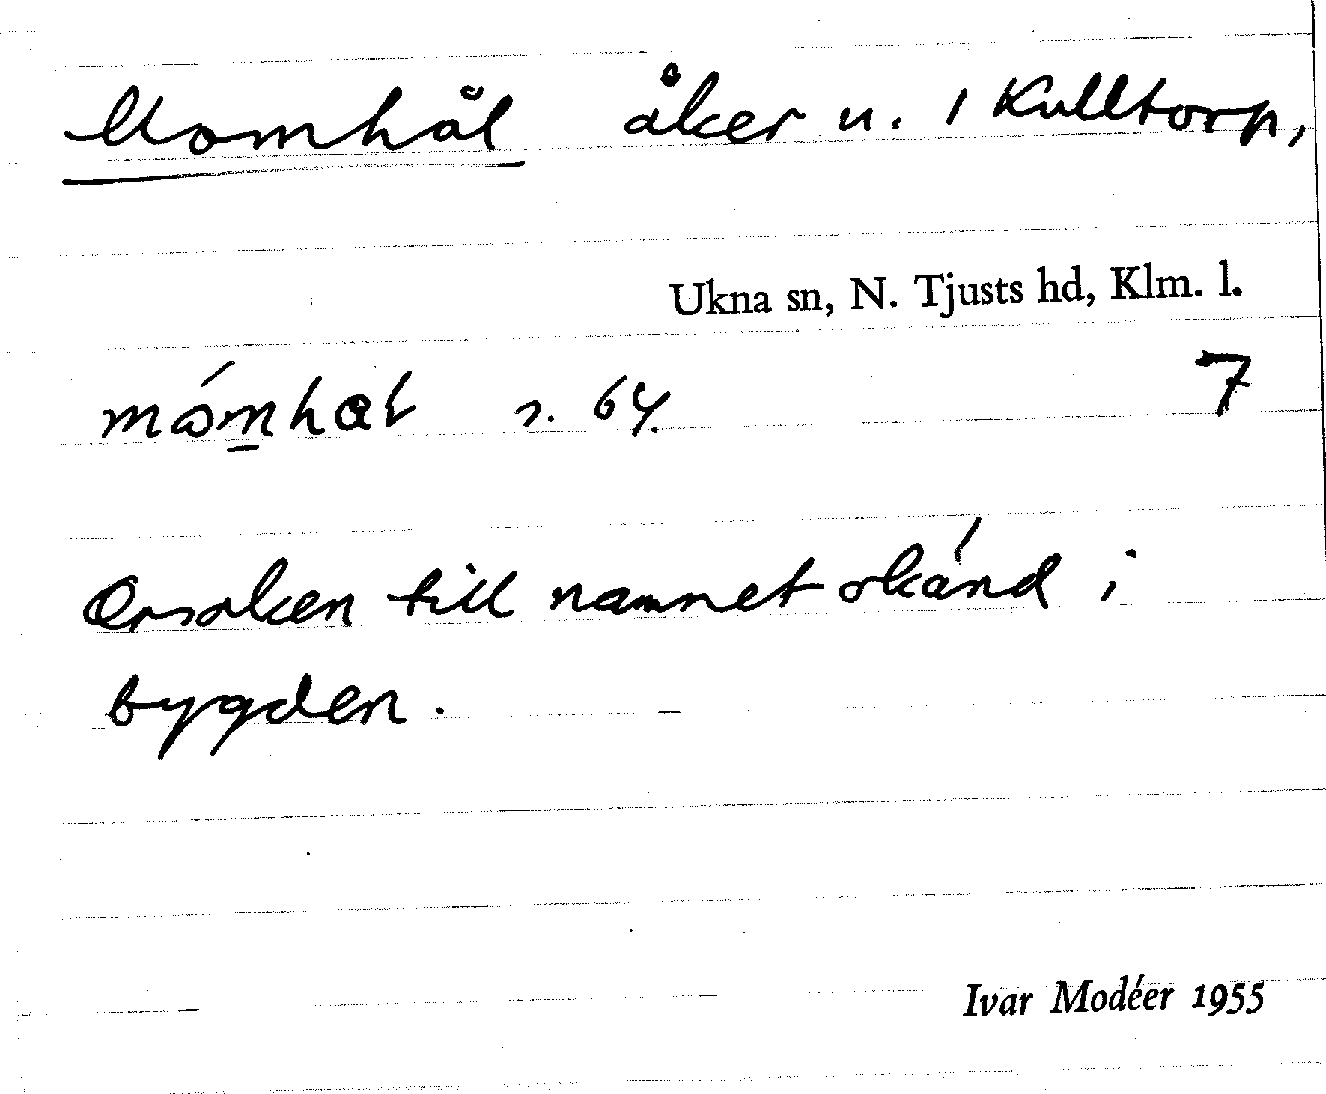 Momhål åker u. 1 Kulltorp,
Ukna sn, N. Tjusts hd, Klm. l.
mómhal s. 64. 7
Orsaken till namnet okänd i
bygden.
Ivar Modéer 1955